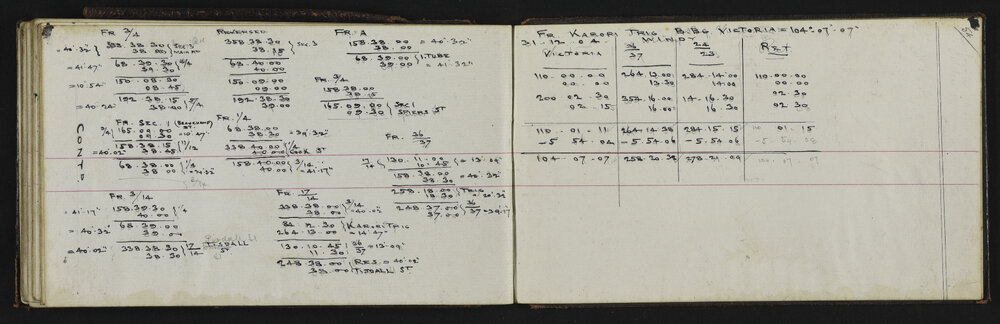 FR 3/4
338.38.30
38.00
SEC 3
MAIN RD
= 40'.32"
68.39.30
39.30
= 41'.47"
150.08.30
08.45
= 10.54"
192.38.15
38.20
1/4
= 40'.24"
CONTD
FR. SEC. 1 (BEAUCHAMP ST
165.09.00
09.30
= 10'.47"
158.38.15
38.45
1/12
= 40'.02"
68.38.00
38.00
1/4
FR 3/14
158.39.30
40.00
1/4
= 41'.17"
68.39.00
39.00
= 40'.32"
338.38.30
38.30
17/14
TISDALL ST
= 40'.02"
REVERSED
338.38.30
38.15
SEC. 3
68.40.00
40.00
150.09.00
09.00
192.38.30
39.00
FR. 1/4
68.38.00
38.30
= 39'.32"
338.40.00
40.00
1/4
COOK ST
158.40.00
40.00
3/14
= 41'.17"
FR. 17/14
338.38.00
38.00
3/14
= 40'.02"
84.12.30
264.13.00
KARORI TRIG
= 14'.47"
130.10.45
11.30
36/37
= 13'.09"
248.38.00
39.00
RES. = 40'.02"
TISDALL ST
FR. A
158.38.00
38.00
= 40'.32"
68.39.00
39.00
I. TUBE
= 41'.32"
FR 3/4
158.38.00
38.15
165.09.00
09.30
SEC 1
SPIERS ST
FR. 36/37
17/14
130.11.00
10.45
= 13'.09"
158.38.00
38.30
= 40'.32"
258.18.00
18.30
TRIG
= 20'.32"
248.37.00
37.00
36/37
= 39'.17"
54
FR KARORI TRIG B.BG VICTORIA = 104°.07'.07"
31.12.04. WIND?
VICTORIA 36/37 24/23 R≥T
110.00.00 264.13.00 284.14.00 110.00.00
00.0 13.30 14.00 00.00
200.02.30 354.16.00 14.16.30 02.30
02.15 16.00 16.30 02.30
110.01.11 264.14.38 284.15.15 110.01.15
-5.54.04 -5.54.06 -5.54.06 -5.54.08
104.07.07 258.20.32 278.21.09 104.07.07